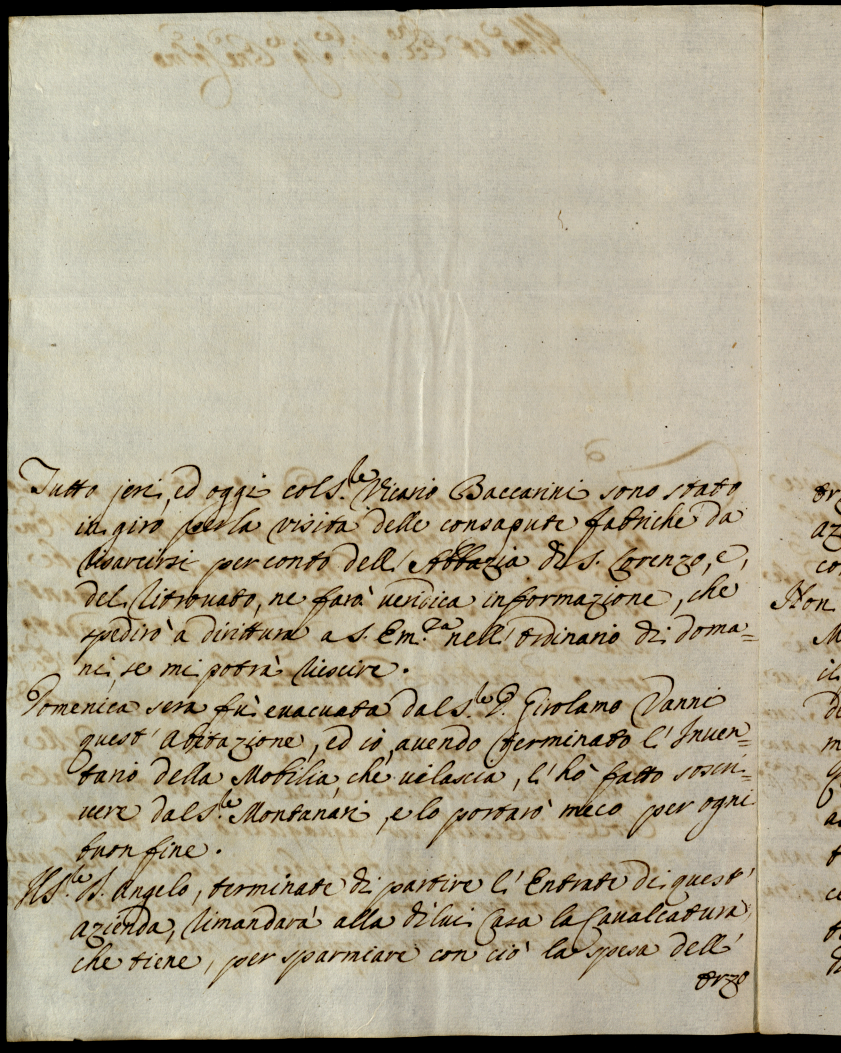 Tutto jeri, ed oggi col S.^le Vicario Baccarini sono stato
in giro per la visita delle consapute fabriche da
risarcirsi per conto dell' Abbazia di S. Lorenzo, e,
del ritrovato, ne farà veridica informazione, che
spedirò a dirittura a S. Em.^za nell' ordinario di doma=
ni, se mi potrà riescire.
Domenica sera fù evacuata dal S.^le D. Girolamo Vanni
quest' abitazione, ed io, avendo terminato l' Inven=
tario della Mobilia, che vi lascia, l' hò fatto soscri=
vere dal S.^le Montanari, e lo portarò meco per ogni
buon fine.
Il S.^le D. Angelo, terminate di partire l' Entrate di quest'
azienda, rimandarà alla di lui Casa la Cavalcatura,
che tiene, per sparmiare con ciò la spesa dell'
orzo
Non